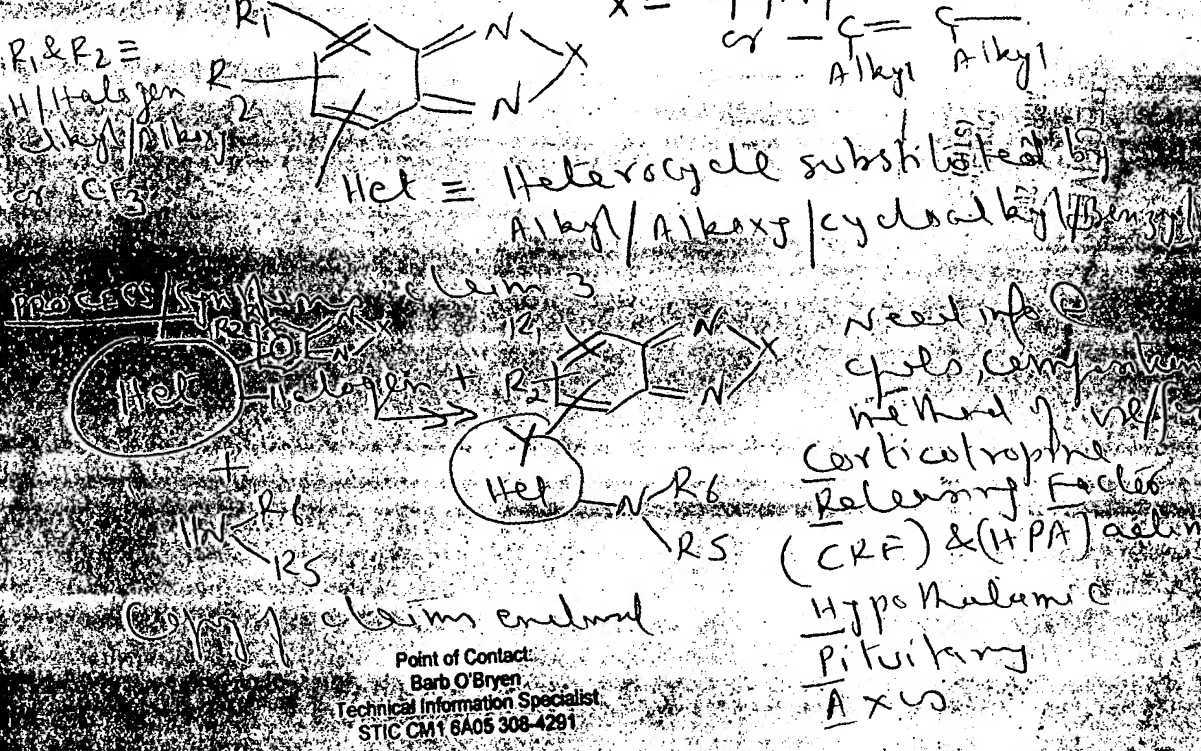 R1
N
X =
or - C = C -
Alkyl Alkyl
R1 & R2 ≡
H/Halogen
Alkyl/Alkoxy
or CF3
R
2
N
X
Het ≡ Heterocycle substituted by
Alkyl/Alkoxy/cycloalkyl/Benzyl
PROCESS/synthesis claim 3
R2
N
X
N
Het - Halogen +
+
HN
R6
R5
R1
R2
N
X
N
Y
Het
N
R6
R5
Need info @
cpds,
method of
Corticotropine
Releasing Factor
(CRF) & (HPA)
Hypothalamic
Pituitary
Axis
Copy of claims enclosed
Point of Contact:
Barb O'Bryen
Technical Information Specialist
STIC CM1 6A05 308-4291